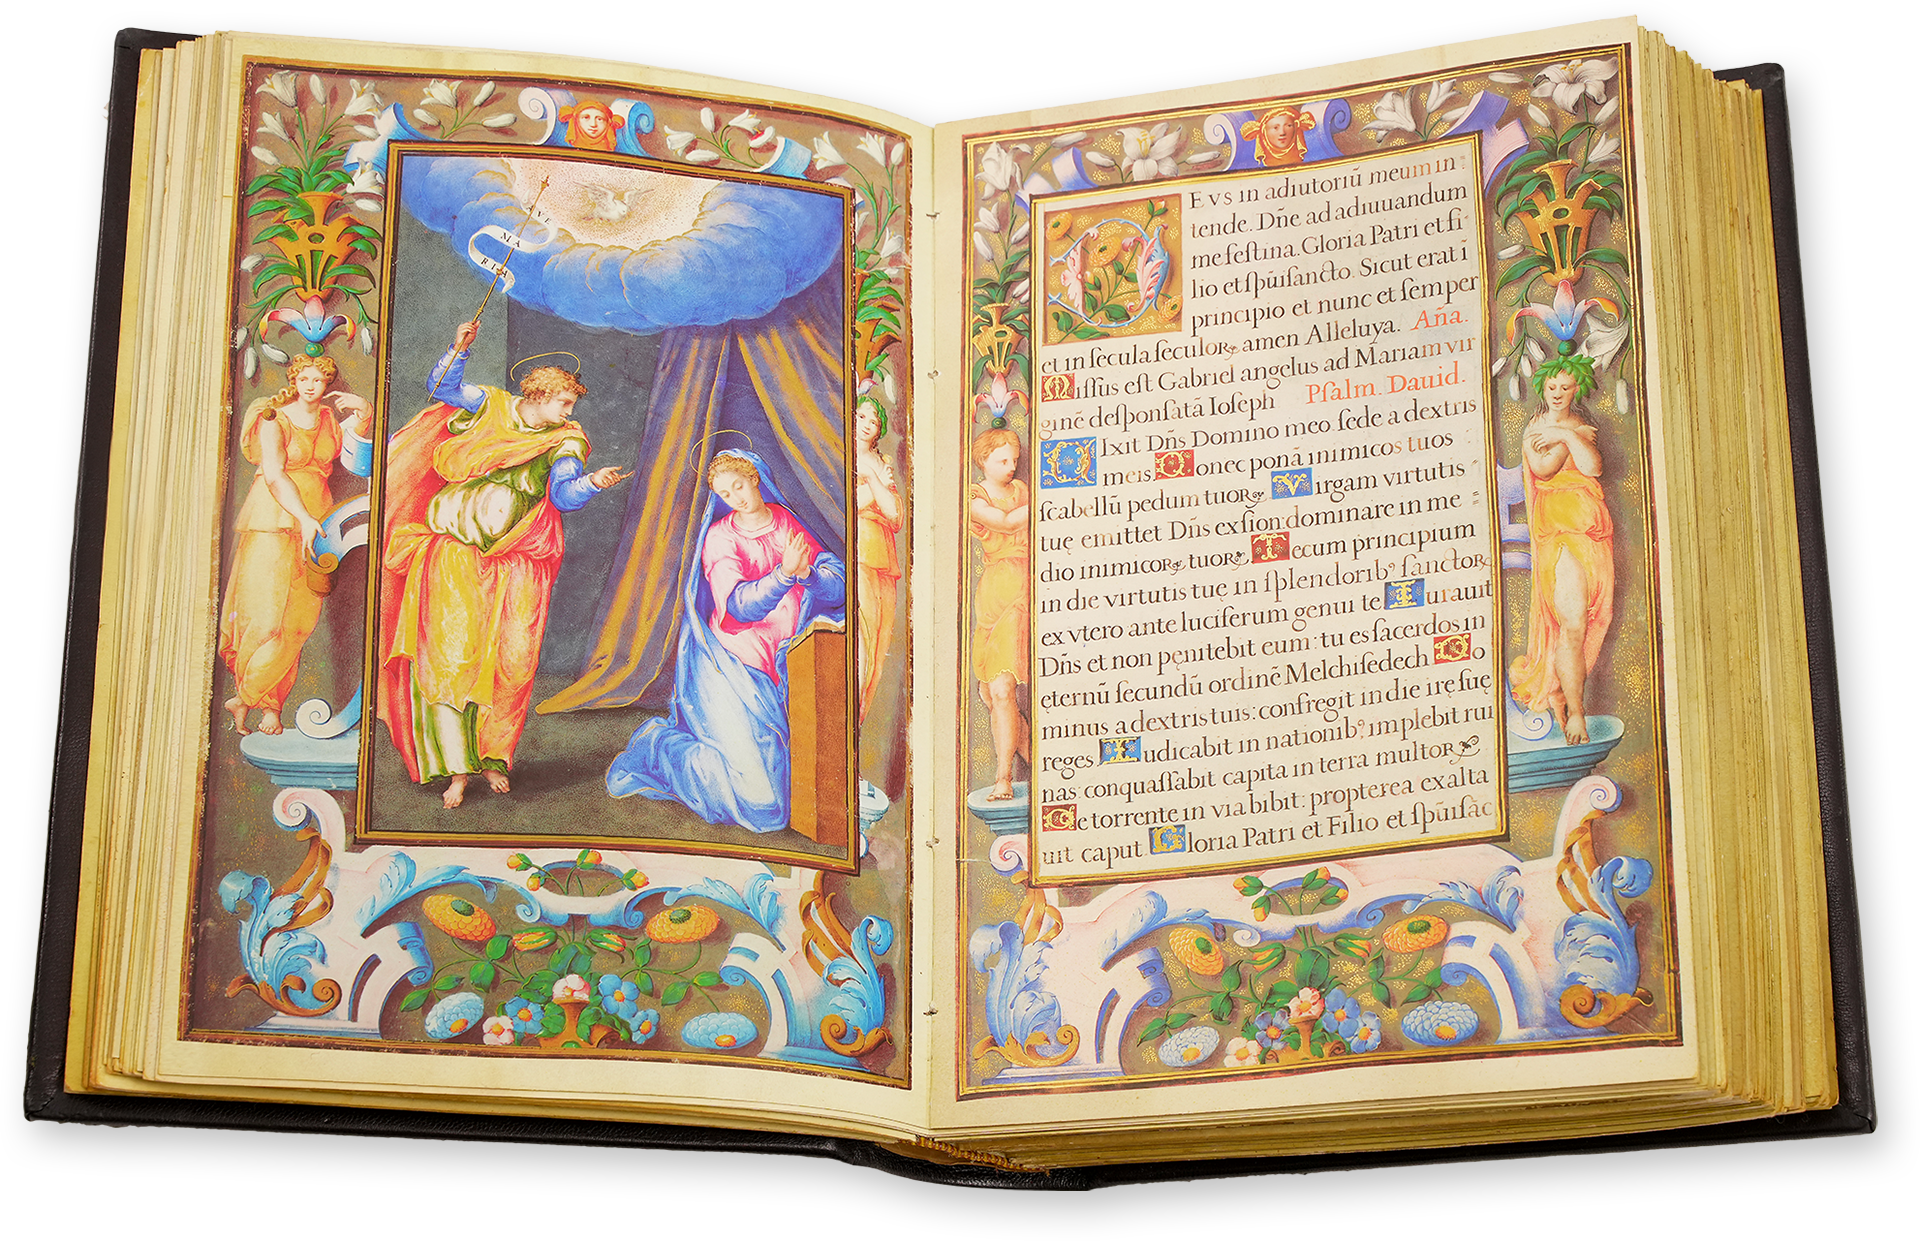 AVE
MA
RIA
EVS in adiutoriũ meum in:
tende. Dñe ad adiuuandum
me feſtina. Gloria Patri et fi
lio et ſpũiſancto. Sicut erat ĩ
principio et nunc et ſemper
et in ſecula ſeculoꝝ amen Alleluya. Aña.
Miſſus eſt Gabriel angelus ad Mariam vir
ginẽ deſponſatã Ioſeph Pſalm. Dauid.
DIxit Dñs Domino meo ſede a dextris
meis. Donec ponã inimicos tuos
ſcabellũ pedum tuoꝝ. Virgam virtutis
tuę emittet Dñs ex ſion: dominare in me =
dio inimicoꝝ tuoꝝ. Tecum principium
in die virtutis tuę in ſplendorib⁹ ſanctoꝝ
ex vtero ante luciferum genui te. Iurauit
Dñs et non pęnitebit eum: tu es ſacerdos in
ęternũ ſecundũ ordinẽ Melchiſedech Do
minus a dextris tuis: confregit in die irę ſuę
reges Iudicabit in nationib⁹, implebit rui
nas: conquaſſabit capita in terra multoꝝ
De torrente in via bibit: propterea exalta
uit caput. Gloria Patri et Filio et ſpũiſãc